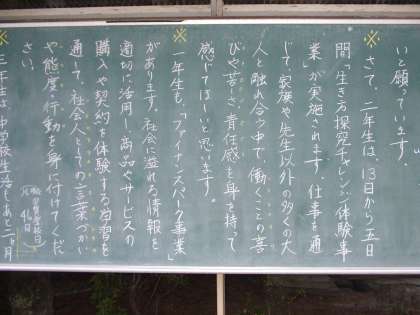 いと願っています。
※さて、二年生は、13日から五日
間「生き方探究チャレンジ体験事
業」が実施されます。仕事を通
じて、家族や先生以外の多くの大
人と触れ合う中で、働くことの喜
びや苦しさ、責任感を身を持って
感じてほしいと思います。
一年生も、「ファイナンスパーク事業」
があります。社会に溢れる情報を
適切に活用し、商品やサービスの
購入や契約を体験する学習を
通して、社会人としての言葉づかい
や態度・行動を身に付けてくだ
さい。
※三年生は、中学校生活もあと一ヶ月